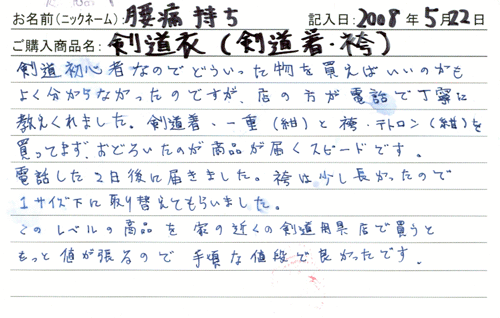 お名前(ニックネーム): 腰痛持ち 記入日: 2008年5月22日
ご購入商品名: 剣道衣(剣道着・袴)
剣道初心者なのでどういった物を買えばいいのかも
よく分からなかったのですが、店の方が電話で丁寧に
教えくれました。剣道着・一重(紺)と袴・テトロン(紺)を
買ってまず、おどろいたのが商品が届くスピードです。
電話した2日後に届きました。袴は少し長かったので
1サイズ下に取り替えてもらいました。
このレベルの商品を家の近くの剣道用具店で買うと
もっと値が張るので手頃な値段で良かったです。